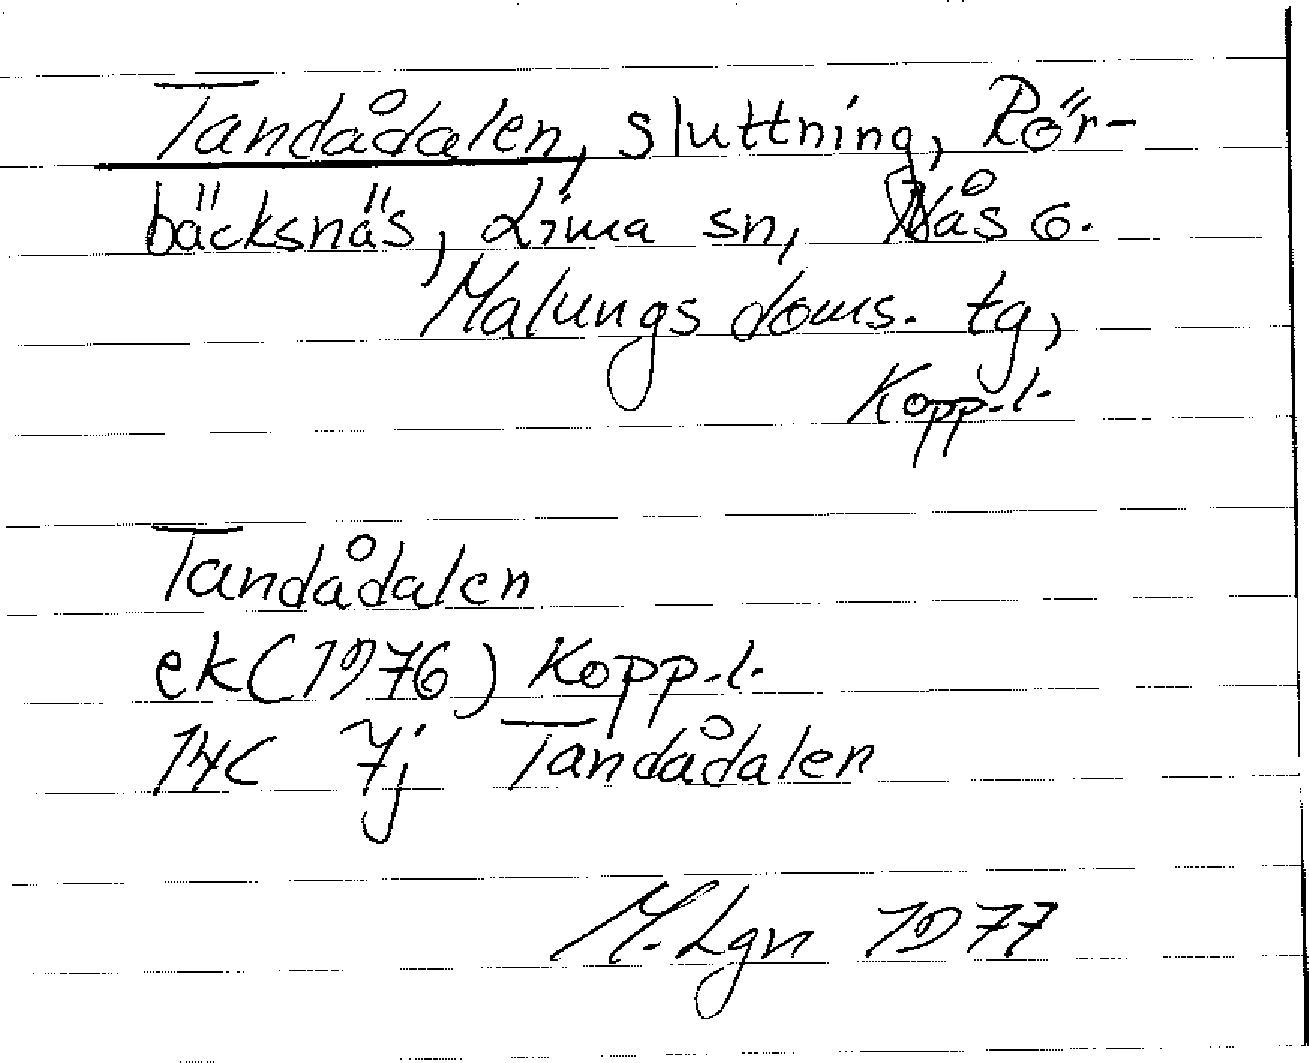 Tandådalen, sluttning, Rör-
bäcksnäs, Lima sn, Nås o.
Malungs doms. tg,
Kopp.l.
Tandådalen
ek (1976) Kopp.l.
14C 7j Tandådalen
M.Lgn 1977